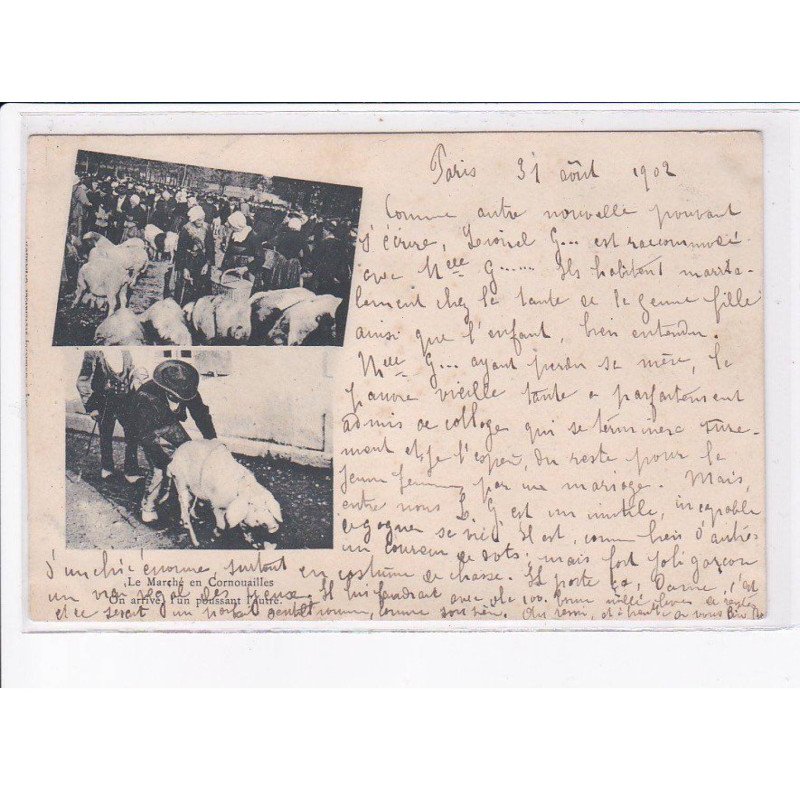 Paris 31 août 1902
Comme autre nouvelle pouvant
s'écrire, Lionel G... est raccommodé
avec Melle G...... Ils habitent marita-
lement chez la tante de la jeune fille
ainsi que l'enfant, bien entendu.
Melle G... ayant perdu sa mère, la
pauvre vieille tante a parfaitement
admis ce collage qui se terminera
ment et je l'espère, du reste pour la
jeune femme par un mariage. Mais,
entre nous L. G. est un inutile, incapable
de gagner sa vie. Il est, comme bien d'autres
un coureur de dots, mais fort joli garçon
d'un chic énorme, surtout en costume de chasse. Il porte ça, Dame, c'est
un vrai régal des yeux. Il lui faudrait avec ole 100. 000 mille livres de rentes
et ce serait un parfait gentilhomme, comme son père. Au revoir, et à vous
Le Marché en Cornouailles
On arrive, l'un poussant l'autre.